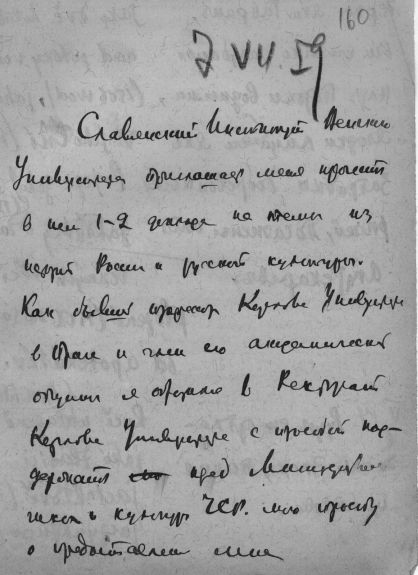 160
7 VII 59
Славянский Институт
Университета приглашает меня прочесть
в нем 1-2 доклада на темы из
России и русской культуры.
Как бывший профессор Карлова Университета
в Праге и член его академической
общины я обращаюсь в Ректорат
Карлова Университета с просьбой под-
держать пред Министерством
и культуры ЧСР. мою просьбу
о предоставлении мне